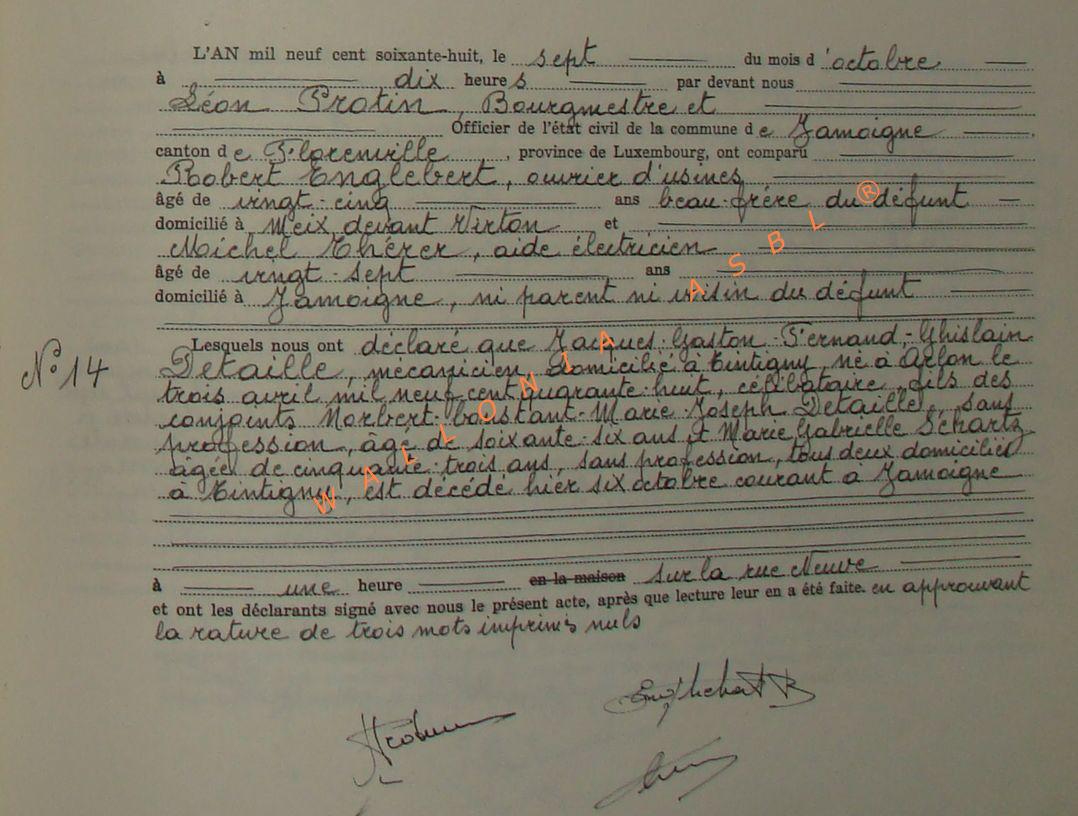 L'AN mil neuf cent soixante-huit, le sept du mois d'octobre
à dix heures par devant nous
Léon Protin, Bourgmestre et
Officier de l'état civil de la commune de Jamoigne
canton de Florenville, province de Luxembourg, ont comparu
Robert Englebert, ouvrier d'usines
âgé de vingt-cinq ans beau-frère du défunt
domicilié à Meix devant Virton et
Michel Thérer, aide électricien
âgé de vingt-sept ans
domicilié à Jamoigne, ni parent ni voisin du défunt
Lesquels nous ont déclaré que Jacques-Gaston-Fernand-Ghislain
N° 14
Detaille, mécanicien, domicilié à Tintigny, né à Arlon le
trois avril mil neuf cent quarante-huit, célibataire, fils des
conjoints Norbert-Constant-Marie-Joseph Detaille, sans
profession, âgé de soixante-six ans et Marie Gabrielle Schartz
âgée de cinquante-trois ans, sans profession, tous deux domiciliés
à Tintigny, est décédé hier six octobre courant à Jamoigne
à une heure en la maison sur la rue Neuve
et ont les déclarants signé avec nous le présent acte, après que lecture leur en a été faite. en approuvant
la rature de trois mots imprimés nuls
WALLONIA ASBL ®